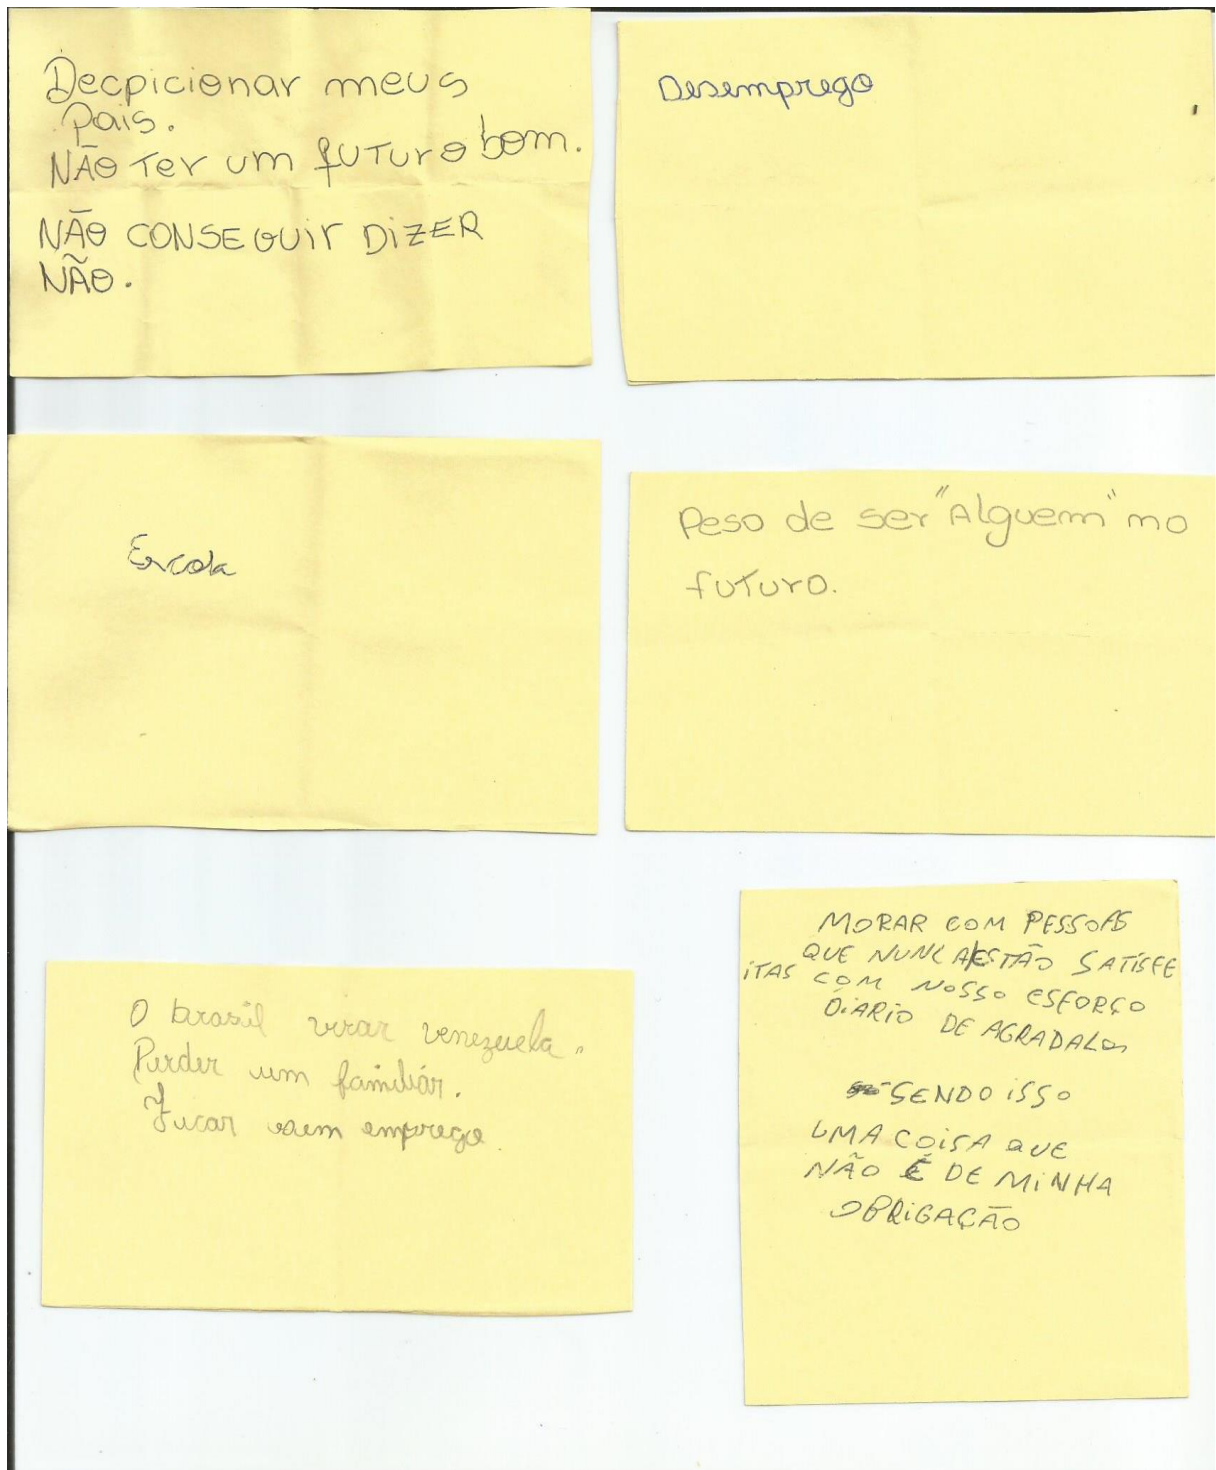 Decpicionar meus
Pais.
NÃO Ter um fuTuro bom.
NÃO CONSEGUIr DiZER
NÃO.
Desemprego
Escola
Peso de ser "Alguem" no
fuTuro.
O brasil virar venezuela.
Perder um familiár.
Ficar sem emprego
MORAR COM PESSOAS
QUE NUNCA ESTÃO SATISFE
iTAS COM NOSSO ESFORÇO
DiARIO DE AGRADALOS
SENDO iSSO
UMA COiSA QUE
NÃO É DE MiNHA
OBRiGAÇÃO